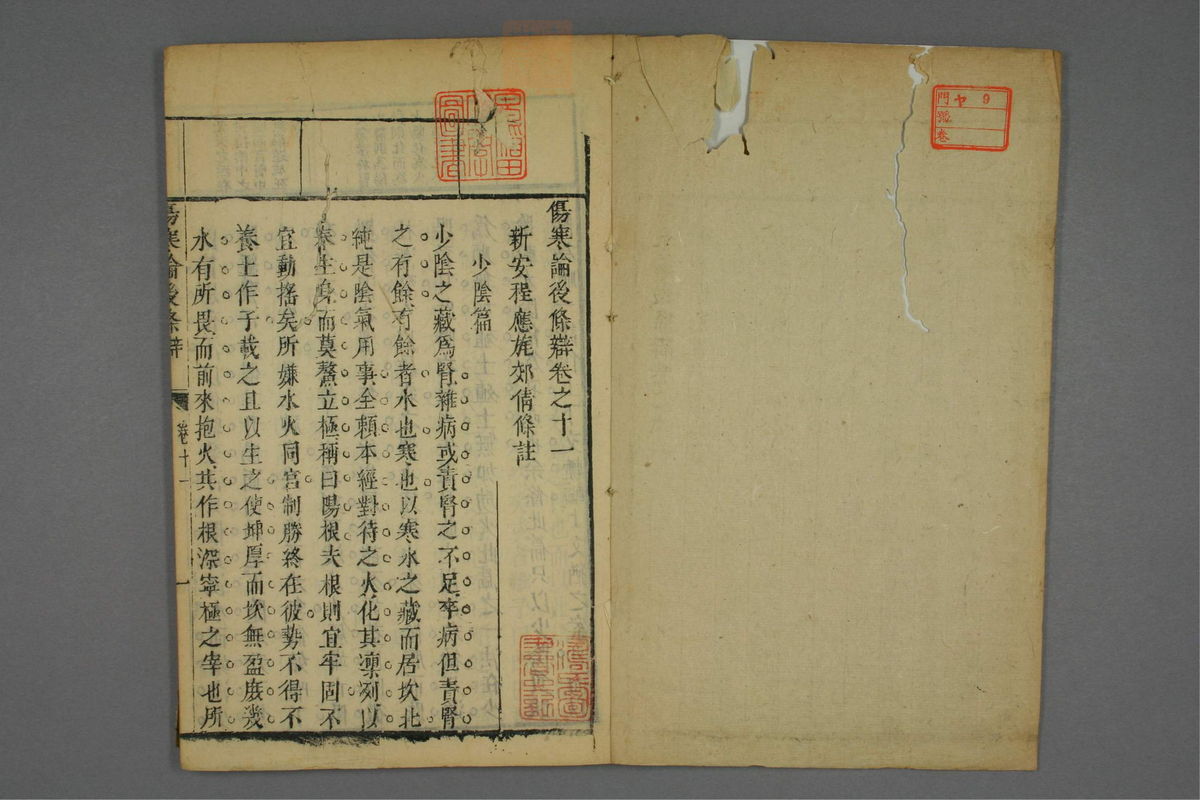 門 ヤ 9
號
卷
傷寒論後條辯卷之十一
新安程應旄郊倩條註
少陰篇
少陰之藏爲腎雜病或責腎之不足卒病但責腎
之有餘有餘者水也寒也以寒水之藏而居坎北
純是陰氣用事全賴本經對待之火化其凜冽以
奉生身而莫鰲立極稱曰陽根夫根則宜牢固不
宜動搖矣所嫌水火同宮制勝終在彼勢不得不
養土作子載之且以生之使坤厚而坎無盈庶幾
水有所畏而前來抱火其作根深寧極之宰也所
傷寒論後條辯
卷十一
一